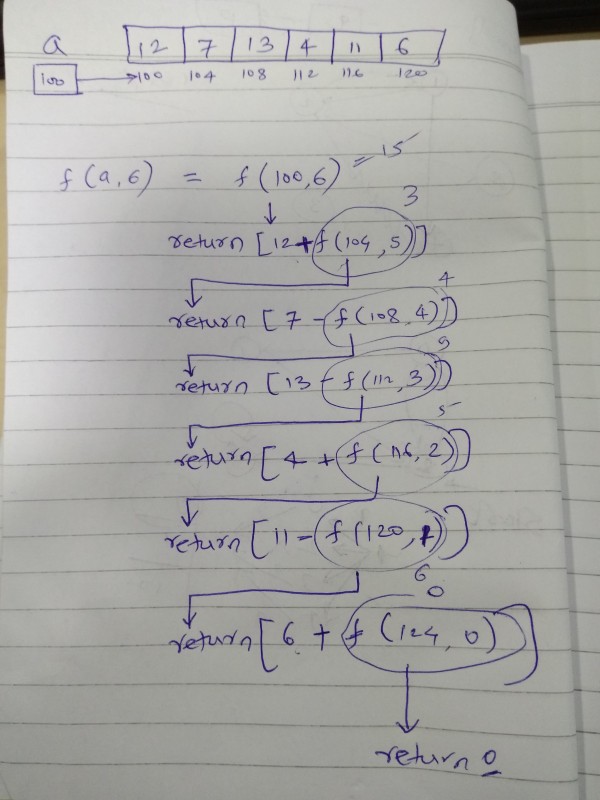 a 12 7 13 4 11 6
100 100 104 108 112 116 120
f(a,6) = f(100,6) = 15
3
return [12+f(104,5)]
4
return [7-f(108,4)]
9
return [13-f(112,3)]
5
return [4+f(116,2)]
return [11-f(120,1)]
6
0
return [6+f(124,0)]
return 0